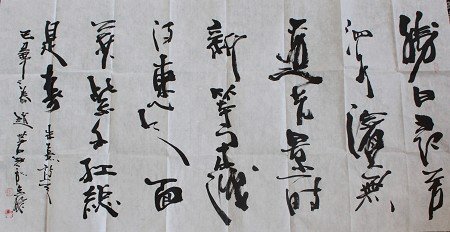 勝日尋芳
泗水濱無
邊光景一时
新等闲識
得東風面
萬紫千红總
是春 朱熹詩